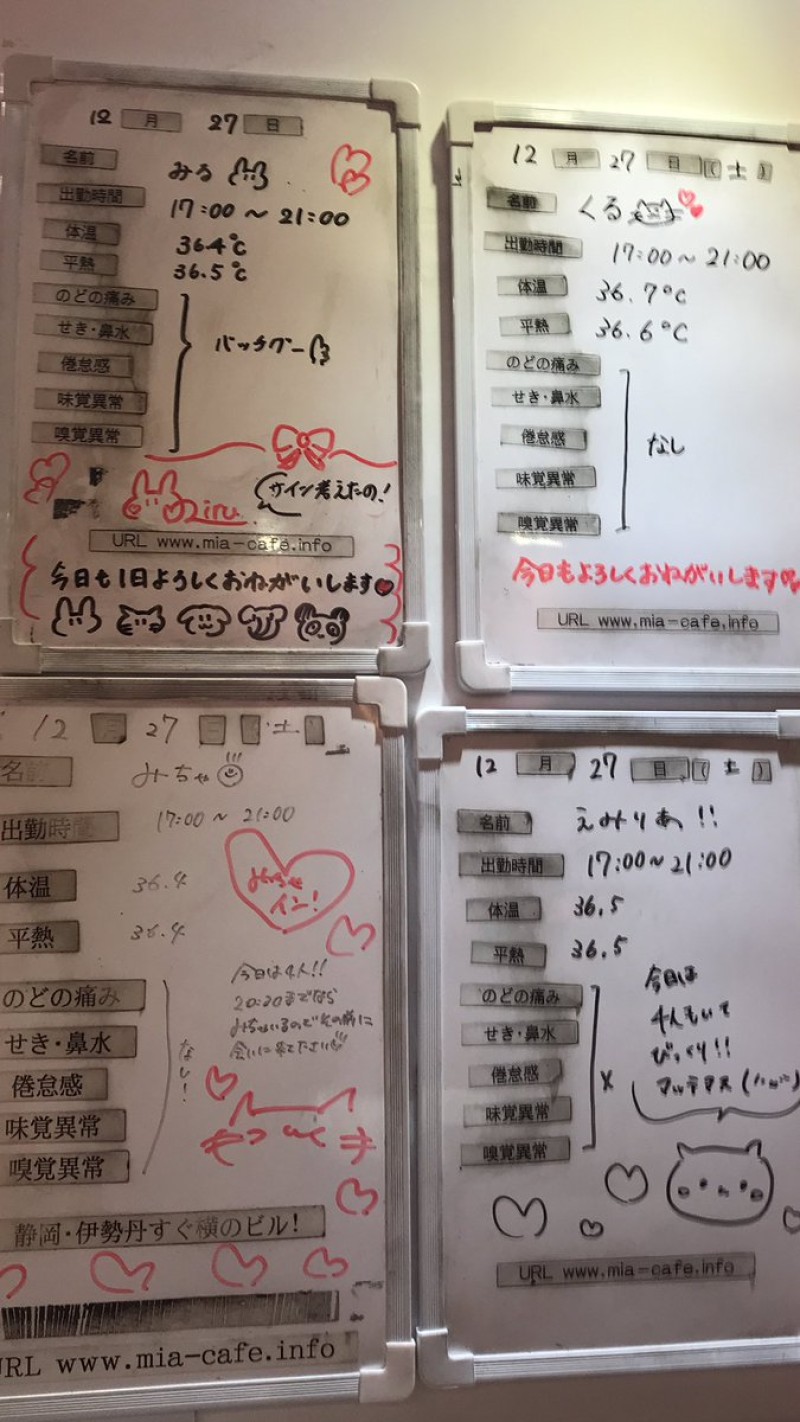 12 月 27 日
名前 みる
出勤時間 17:00 ~ 21:00
体温 36.4℃
平熱 36.5℃
のどの痛み
せき・鼻水
倦怠感
味覚異常
嗅覚異常
バッチグー
Miru.
サイン考えたの!
URL www.mia-cafe.info
今日も1日よろしくおねがいします
12 月 27 日 ( 土 )
名前 くる
出勤時間 17:00 ~ 21:00
体温 36.7℃
平熱 36.6℃
のどの痛み
せき・鼻水
倦怠感
味覚異常
嗅覚異常
なし
今日もよろしくおねがいします
URL www.mia-cafe.info
12 月 27 日 ( 土 )
名前 みちゃ
出勤時間 17:00 ~ 21:00
体温 36.4
平熱 36.4
みちゃ
イン!
のどの痛み
せき・鼻水
倦怠感
味覚異常
嗅覚異常
なし!
今日は4人!!
20:30までなら
みちゃいるのでその前に
会いに来てださい
静岡・伊勢丹すぐ横のビル!
URL www.mia-cafe.info
12 月 27 日 ( 土 )
名前 えみりあ!!
出勤時間 17:00~21:00
体温 36.5
平熱 36.5
のどの痛み
せき・鼻水
倦怠感
味覚異常
嗅覚異常
x
今日は
4人もいて
びっくり!!
URL www.mia-cafe.info